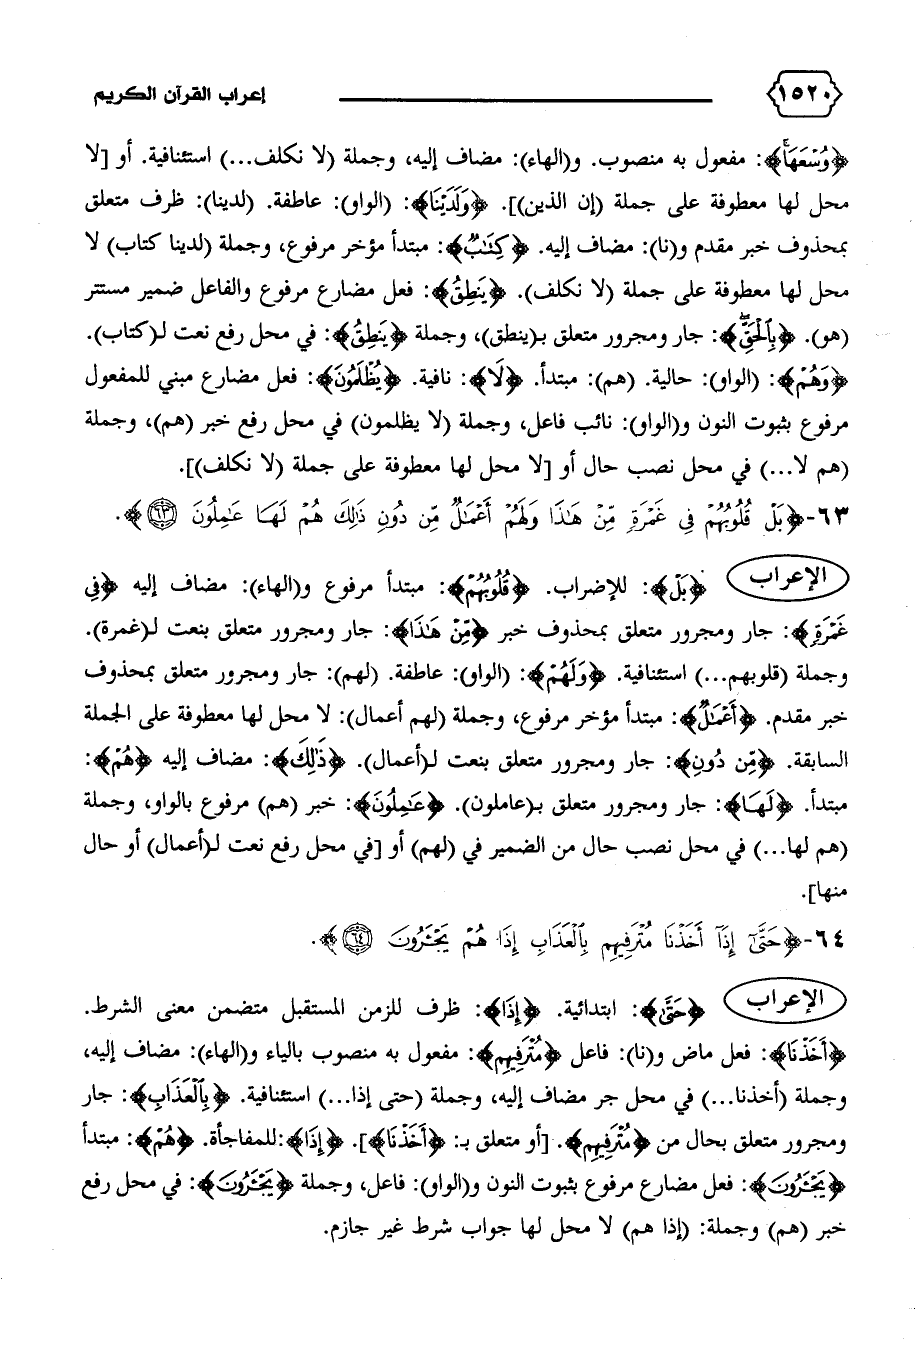 ١٥٢٠ إعراب القرآن الكريم
﴿وُسْعَهَا﴾: مفعول به منصوب. و(الهاء): مضاف إليه، وجملة (لا نكلف...) استئنافية. أو [لا
محل لها معطوفة على جملة (إن الذين)]. ﴿وَلَدَيْنَا﴾: (الواو): عاطفة. (لدينا): ظرف متعلق
بمحذوف خبر مقدم و(نا): مضاف إليه. ﴿كِتَٰبٌ﴾: مبتدأ مؤخر مرفوع، وجملة (لدينا كتاب) لا
محل لها معطوفة على جملة (لا نكلف). ﴿يَنطِقُ﴾: فعل مضارع مرفوع والفاعل ضمير مستتر
(هو). ﴿بِٱلْحَقِّ﴾: جار ومجرور متعلق بـ(ينطق)، وجملة ﴿يَنطِقُ﴾: في محل رفع نعت لـ(كتاب).
﴿وَهُمْ﴾: (الواو): حالية. (هم): مبتدأ. ﴿لَا﴾: نافية. ﴿يُظْلَمُونَ﴾: فعل مضارع مبني للمفعول
مرفوع بثبوت النون و(الواو): نائب فاعل، وجملة (لا يظلمون) في محل رفع خبر (هم)، وجملة
(هم لا...) في محل نصب حال أو [لا محل لها معطوفة على جملة (لا نكلف)].
٦٣-﴿بَلْ قُلُوبُهُمْ فِي غَمْرَةٍ مِّنْ هَٰذَا وَلَهُمْ أَعْمَٰلٌ مِّن دُونِ ذَٰلِكَ هُمْ لَهَا عَٰمِلُونَ ٦٣﴾.
الإعراب ﴿بَلْ﴾: للإضراب. ﴿قُلُوبُهُمْ﴾: مبتدأ مرفوع و(الهاء): مضاف إليه ﴿فِي
غَمْرَةٍ﴾: جار ومجرور متعلق بمحذوف خبر ﴿مِّنْ هَٰذَا﴾: جار ومجرور متعلق بنعت لـ(غمرة).
وجملة (قلوبهم...) استئنافية. ﴿وَلَهُمْ﴾: (الواو): عاطفة. (لهم): جار ومجرور متعلق بمحذوف
خبر مقدم. ﴿أَعْمَٰلٌ﴾: مبتدأ مؤخر مرفوع، وجملة (لهم أعمال): لا محل لها معطوفة على الجملة
السابقة. ﴿مِّن دُونِ﴾: جار ومجرور متعلق بنعت لـ(أعمال). ﴿ذَٰلِكَ﴾: مضاف إليه ﴿هُمْ﴾:
مبتدأ. ﴿لَهَا﴾: جار ومجرور متعلق بـ(عاملون). ﴿عَٰمِلُونَ﴾: خبر (هم) مرفوع بالواو، وجملة
(هم لها...) في محل نصب حال من الضمير في (لهم) أو [في محل رفع نعت لـ(أعمال) أو حال
منها].
٦٤-﴿حَتَّىٰٓ إِذَآ أَخَذْنَا مُتْرَفِيهِم بِٱلْعَذَابِ إِذَا هُمْ يَجْـَٔرُونَ ٦٤﴾.
الإعراب ﴿حَتَّىٰ﴾: ابتدائية. ﴿إِذَا﴾: ظرف للزمن المستقبل متضمن معنى الشرط.
﴿أَخَذْنَا﴾: فعل ماض و(نا): فاعل ﴿مُتْرَفِيهِم﴾: مفعول به منصوب بالياء و(الهاء): مضاف إليه،
وجملة (أخذنا...) في محل جر مضاف إليه، وجملة (حتى إذا...) استئنافية. ﴿بِٱلْعَذَابِ﴾: جار
ومجرور متعلق بحال من ﴿مُتْرَفِيهِم﴾. [أو متعلق بـ: ﴿أَخَذْنَا﴾]. ﴿إِذَا﴾:للمفاجأة. ﴿هُمْ﴾: مبتدأ
﴿يَجْـَٔرُونَ﴾: فعل مضارع مرفوع بثبوت النون و(الواو): فاعل، وجملة ﴿يَجْـَٔرُونَ﴾: في محل رفع
خبر (هم) وجملة: (إذا هم) لا محل لها جواب شرط غير جازم.